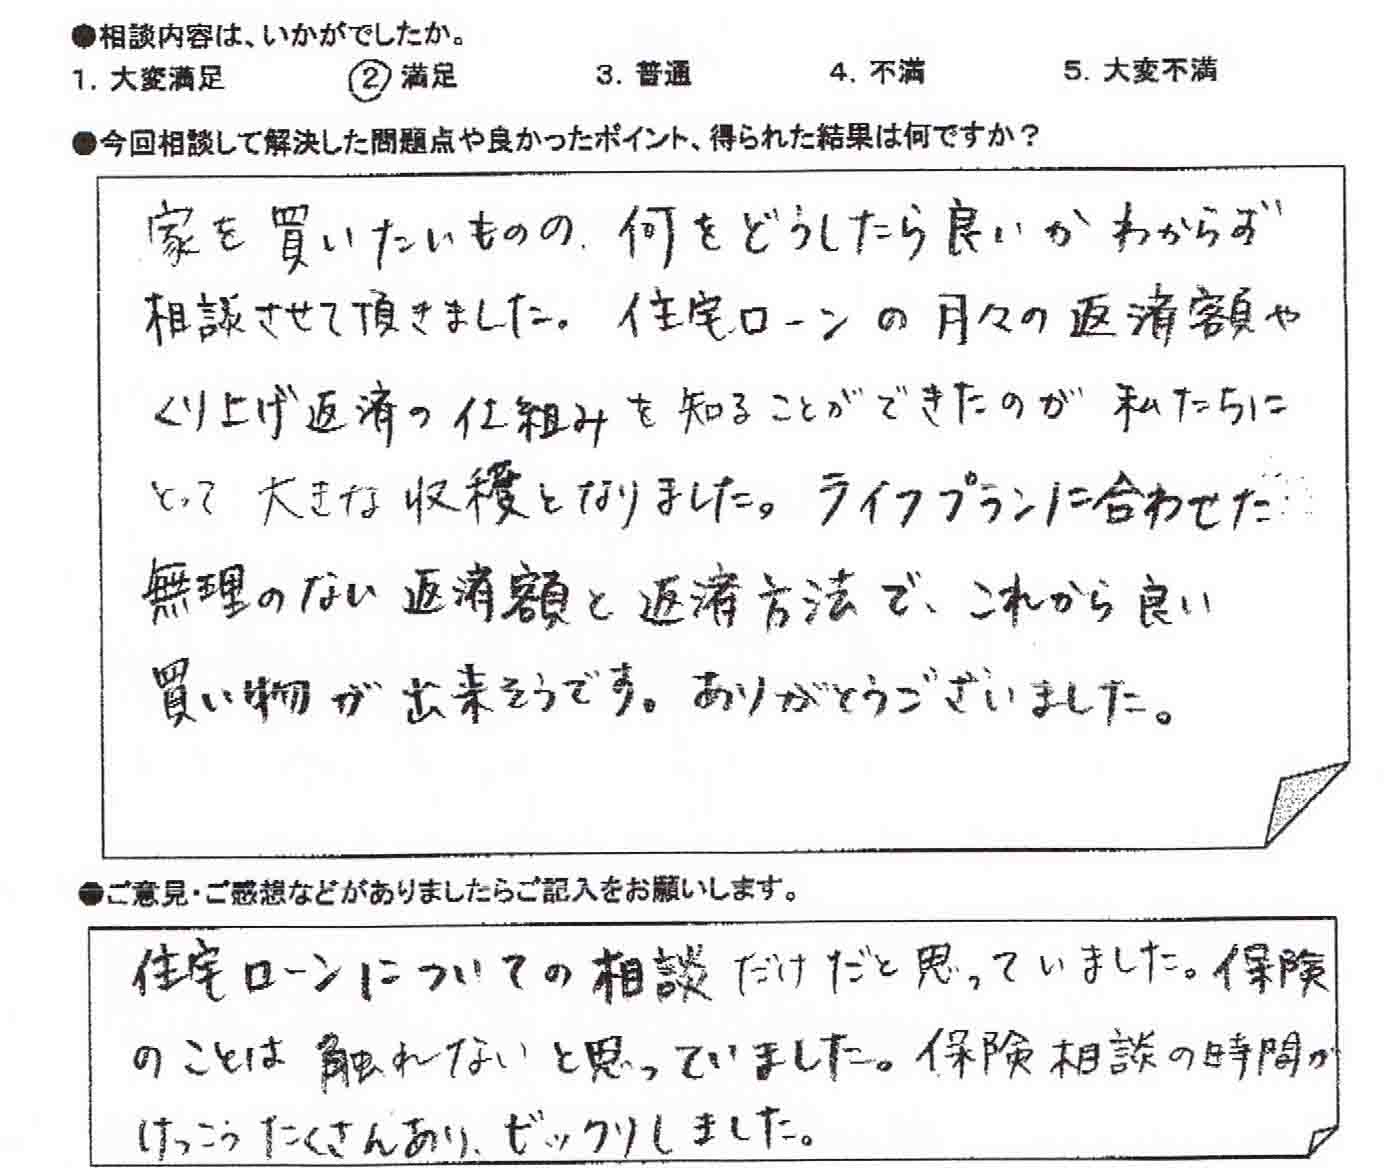 ●相談内容は、いかがでしたか。
1. 大変満足 ② 満足 3. 普通 4. 不満 5. 大変不満
●今回相談して解決した問題点や良かったポイント、得られた結果は何ですか？
家を買いたいものの、何をどうしたら良いかわからず
相談させて頂きました。住宅ローンの月々の返済額や
くり上げ返済の仕組みを知ることができたのが私たちに
とって大きな収穫となりました。ライフプランに合わせた
無理のない返済額と返済方法で、これから良い
買い物が出来そうです。ありがとうございました。
●ご意見・ご感想などがありましたらご記入をお願いします。
住宅ローンについての相談だけだと思っていました。保険
のことは触れないと思っていました。保険相談の時間が
けっこうたくさんあり、ビックリしました。